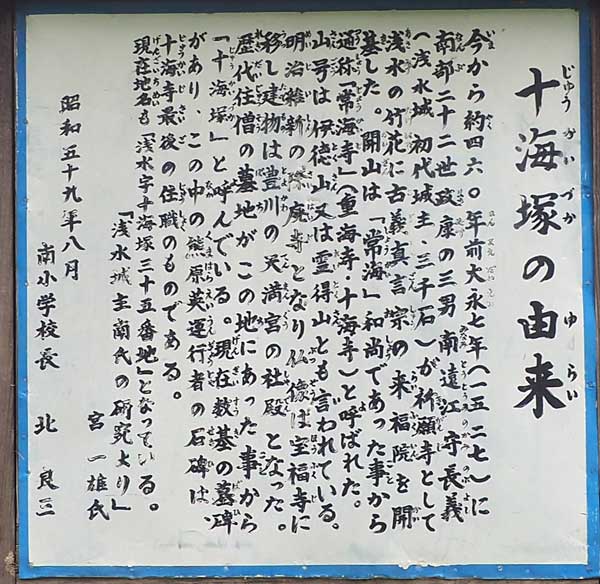 十海塚の由来
じゅうかいづかのゆらい
今から約四六〇年前大永七年(一五二七)に
南部二十二世政康の三男南遠江守長義
(浅水城初代城主、三千石)が祈願寺として
浅水の竹花に古義真言宗の来福院を開
墓した。開山は「常海」和尚であった事から
通称「常海寺」(重海寺・十海寺)と呼ばれた。
山号は伊徳山又は霊得山とも言われている。
明治維新の際廃寺となり仏像は宝福寺に
移し建物は豊川の天満宮の社殿となった。
歴代住僧の墓地がこの地にあった事から
「十海塚」と呼んでいる。現在数基の墓碑
があり、この中の熊原英運行者の石碑は、
十海寺最後の住職のものである。
現在地名も「浅水字十海塚三十五番地」となっている。
「浅水城主南氏の研究より」
宮一雄氏
昭和五十九年八月
南小学校長 北良三